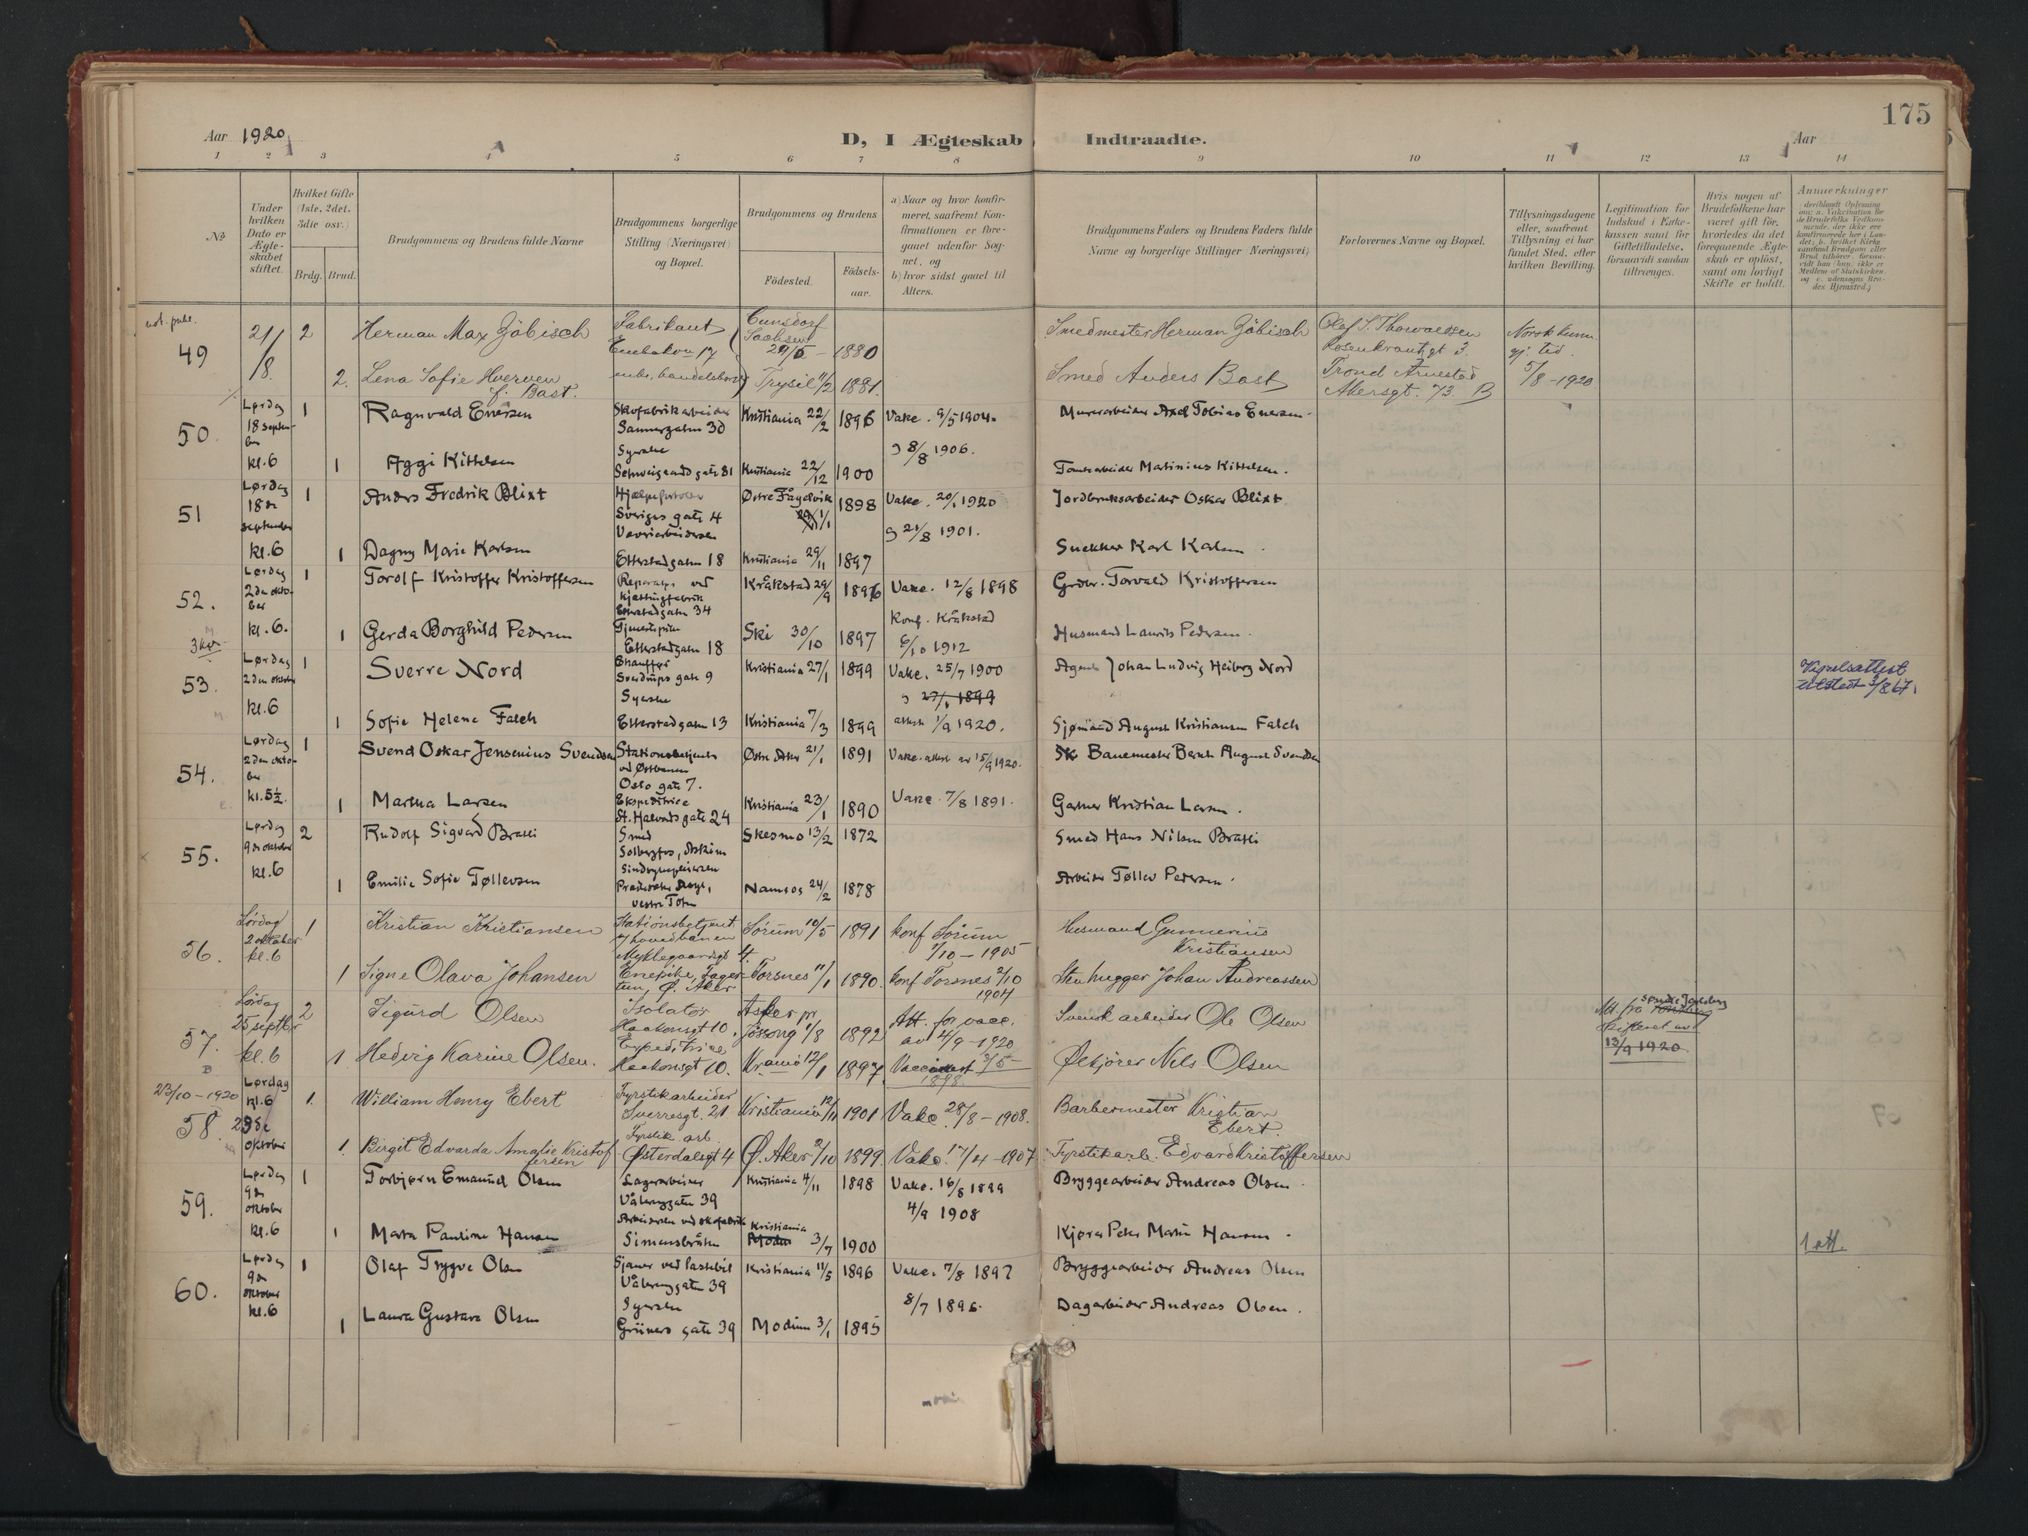 175
Aar 1920
D, I Ægteskab Indtraadte.
Aar
1 2 3 4 5 6 7 8 9 10 11 12 13 14
No
Under hvilken Dato er Ægteskabet stiftet.
Hvilket Gifte (1ste, 2det, 3die osv.)
Brdg. Brud.
Brudgommens og Brudens fulde Navne
Brudgommens borgerlige Stilling (Næringsvei) og Bopæl.
Brudgommens og Brudens
Fødested.
Fødselsaar.
a) Naar og hvor konfirmeret, saafremt Konfirmationen er foregaaet udenfor Sognet, og
b) hvor sidst gaaet til Alters.
Brudgommens Faders og Brudens Faders fulde Navne og borgerlige Stillinger Næringsvei)
Forlovernes Navne og Bopæl.
Tillysningsdagene eller, saafremt Tillysning ei har fundet Sted, efter hvilken Bevilling.
Legitimation for Indskud i Enkekassen samt for Giftetilladelse, forsaavidt saadan tiltrænges.
Hvis nogen af Brudefolkene har været gift før, hvorledes da det foregaaende Ægteskab er opløst, samt om lovligt Skifte er holdt.
Anmerkninger
49
21/8
2
Herman Max Zöbisch
Fabrikant
Cunsdorf Sachsen
1880
Smedmester Herman Zöbisch
Olaf S. Thorvaldsen
Rosenkrantzgt 3
2.
Lena Sofie Hverven
f. Bast.
Trysil 11/2
1881.
Smed Anders Bast
Trond Arnestad
Akersgt. 73.
5/8-1920
50.
Lørdag 18 september kl. 6
1
Ragnvald Enersen
Skofabrikarbeider
Sannergaten 30
Kristiania 22/2
1896
Vakc. 9/5 1904.
Murerarbeider Axel Tobias Enersen.
1
Aggi Kittelsen
Syerske
Schweigaards gate 81
Kristiania 22/12
1900
8/8 1906.
Tomtearbeider Matinius Kittelsen.
51
Lørdag 18de september kl. 6
1
Anders Fredrik Blixt
Sveriges gate 4
Østre Fågelvik
1898
Vakc. 20/1 1920
Jordbruksarbeider Oskar Blixt
1
Dagny Marie Karlsen
Etterstadgaten 18
Kristiania 29/11
1897
21/8 1901.
Snekker Karl Kalsen.
52.
Lørdag 2den oktober kl. 6.
1
Torolf Kristoffer Kristoffersen
Etterstadgaten 34
Kråkstad 29/9
1896
Vakc. 12/8 1898
Grdbr. Torvald Kristoffersen
1
Gerda Borghild Pedersen
Etterstadgaten 18
Ski 30/10
1897
Konf. Kråkstad
6/10 1912
Husmand Laurits Pedersen.
53.
Lørdag 2den oktober kl. 6
1
Sverre Nord
Chauffør
Sverdrups gate 9
Kristiania 27/1
1899
Vakc. 25/7 1900
Agent Johan Ludvig Heiberg Nord
Vigselsattest utstedt 3/8 67.
1
Sofie Helene Falch
Syerske
Etterstadgaten 13
Kristiania 7/3
1899
attest 1/9 1920.
Sjømand August Kristiansen Falch
54.
Lørdag 2den oktober kl. 5½.
1
Svend Oskar Jensenius Svendsen
Stationsbetjent
ved Østbanen
Oslo gate 7.
Østre Aker 21/1
1891
Vakc. attest av 15/9 1920.
Banemester Bernt August Svendsen
1
Martha Larsen
Ekspeditrice
St. Halvards gate 24
Kristiania 23/1
1890
Vakc. 7/8 1891.
Gartner Kristian Larsen.
55.
Lørdag 9de oktober kl. 6
2
Rudolf Sigvard Bratli
Smed
Solbergfos, Askim
Skesmo 13/2
1872
Smed Hans Nilsen Bratli
1
Emilie Sofie Tøllevsen
vestre Toten
Namsos 24/2
1878
Arbeider Tøllev Pedersen.
56.
Lørdag 2 oktober kl. 6
1
Kristian Kristiansen
Stationsbetjent
v/hovedbanen
Myklegaardsgt 4.
Sørum 10/5
1891
Konf Sørum
1/10-1905
Husmand Gunnerius Kristiansen
1
Signe Olava Johansen
Enepike, Tagertun, Ø. Aker
Torsnes 11/1
1890.
Konf Torsnes 2/10 1904
Stenhugger Johan Andreassen
57.
Lørdag 25 septbr kl. 6
2
Sigurd Olsen
Isolatør
Haakonsgt 10.
Asker pr
1/8
1892
Att. for vacc.
av 4/9-1920
Svensk arbeider Ole Olsen
13/9 1920.
1
Hedvig Karine Olsen.
Expeditrice
Haakonsgt 10.
Kr.ania 12/1
1897.
3/5 1898
Ølkjører Nils Olsen
23/10-1920
58.
Lørdag kl. 6 23de Oktober
1.
William Henry Ebert
Fyrstikarbeider
Sverresgt. 21
Kristiania 12/11
1901
Vakc 28/8-1908.
Barbermester Kristian Ebert.
1.
Birgit Edvarda Amalie Kristoffersen
Fyrstik. arb
Østerdalsgt 4
Ø. Aker 2/10
1899.
Vakc. 17/4-1907
Fyrstikarb. Edvard Kristoffersen
59.
Lørdag 9de oktober kl. 6
1
Torbjørn Emanuel Olsen
Lagerarbeider
Vålerenggaten 39
Kristiania 4/11
1898
Vakc. 16/8 1899
Bryggearbeider Andreas Olsen.
1
Marta Pauline Hansen
Arbeiderske ved skofabrik
Simensbråten
Kristiania
Modum 3/7
1900
4/9 1908
Kjører Peter Martin Hansen.
1 att.
60.
Lørdag 9de oktober kl. 6
1
Olaf Trygve Olsen
Sjauer ved Lastebil
Vålerenggaten 39
Kristiania 11/5
1896
Vakc. 7/8 1897
Bryggearbeider Andreas Olsen
1
Laura Gustava Olsen
Syerske
Grüners gate 39
Modum 3/1
1895
8/7 1896.
Dagarbeider Andreas Olsen.